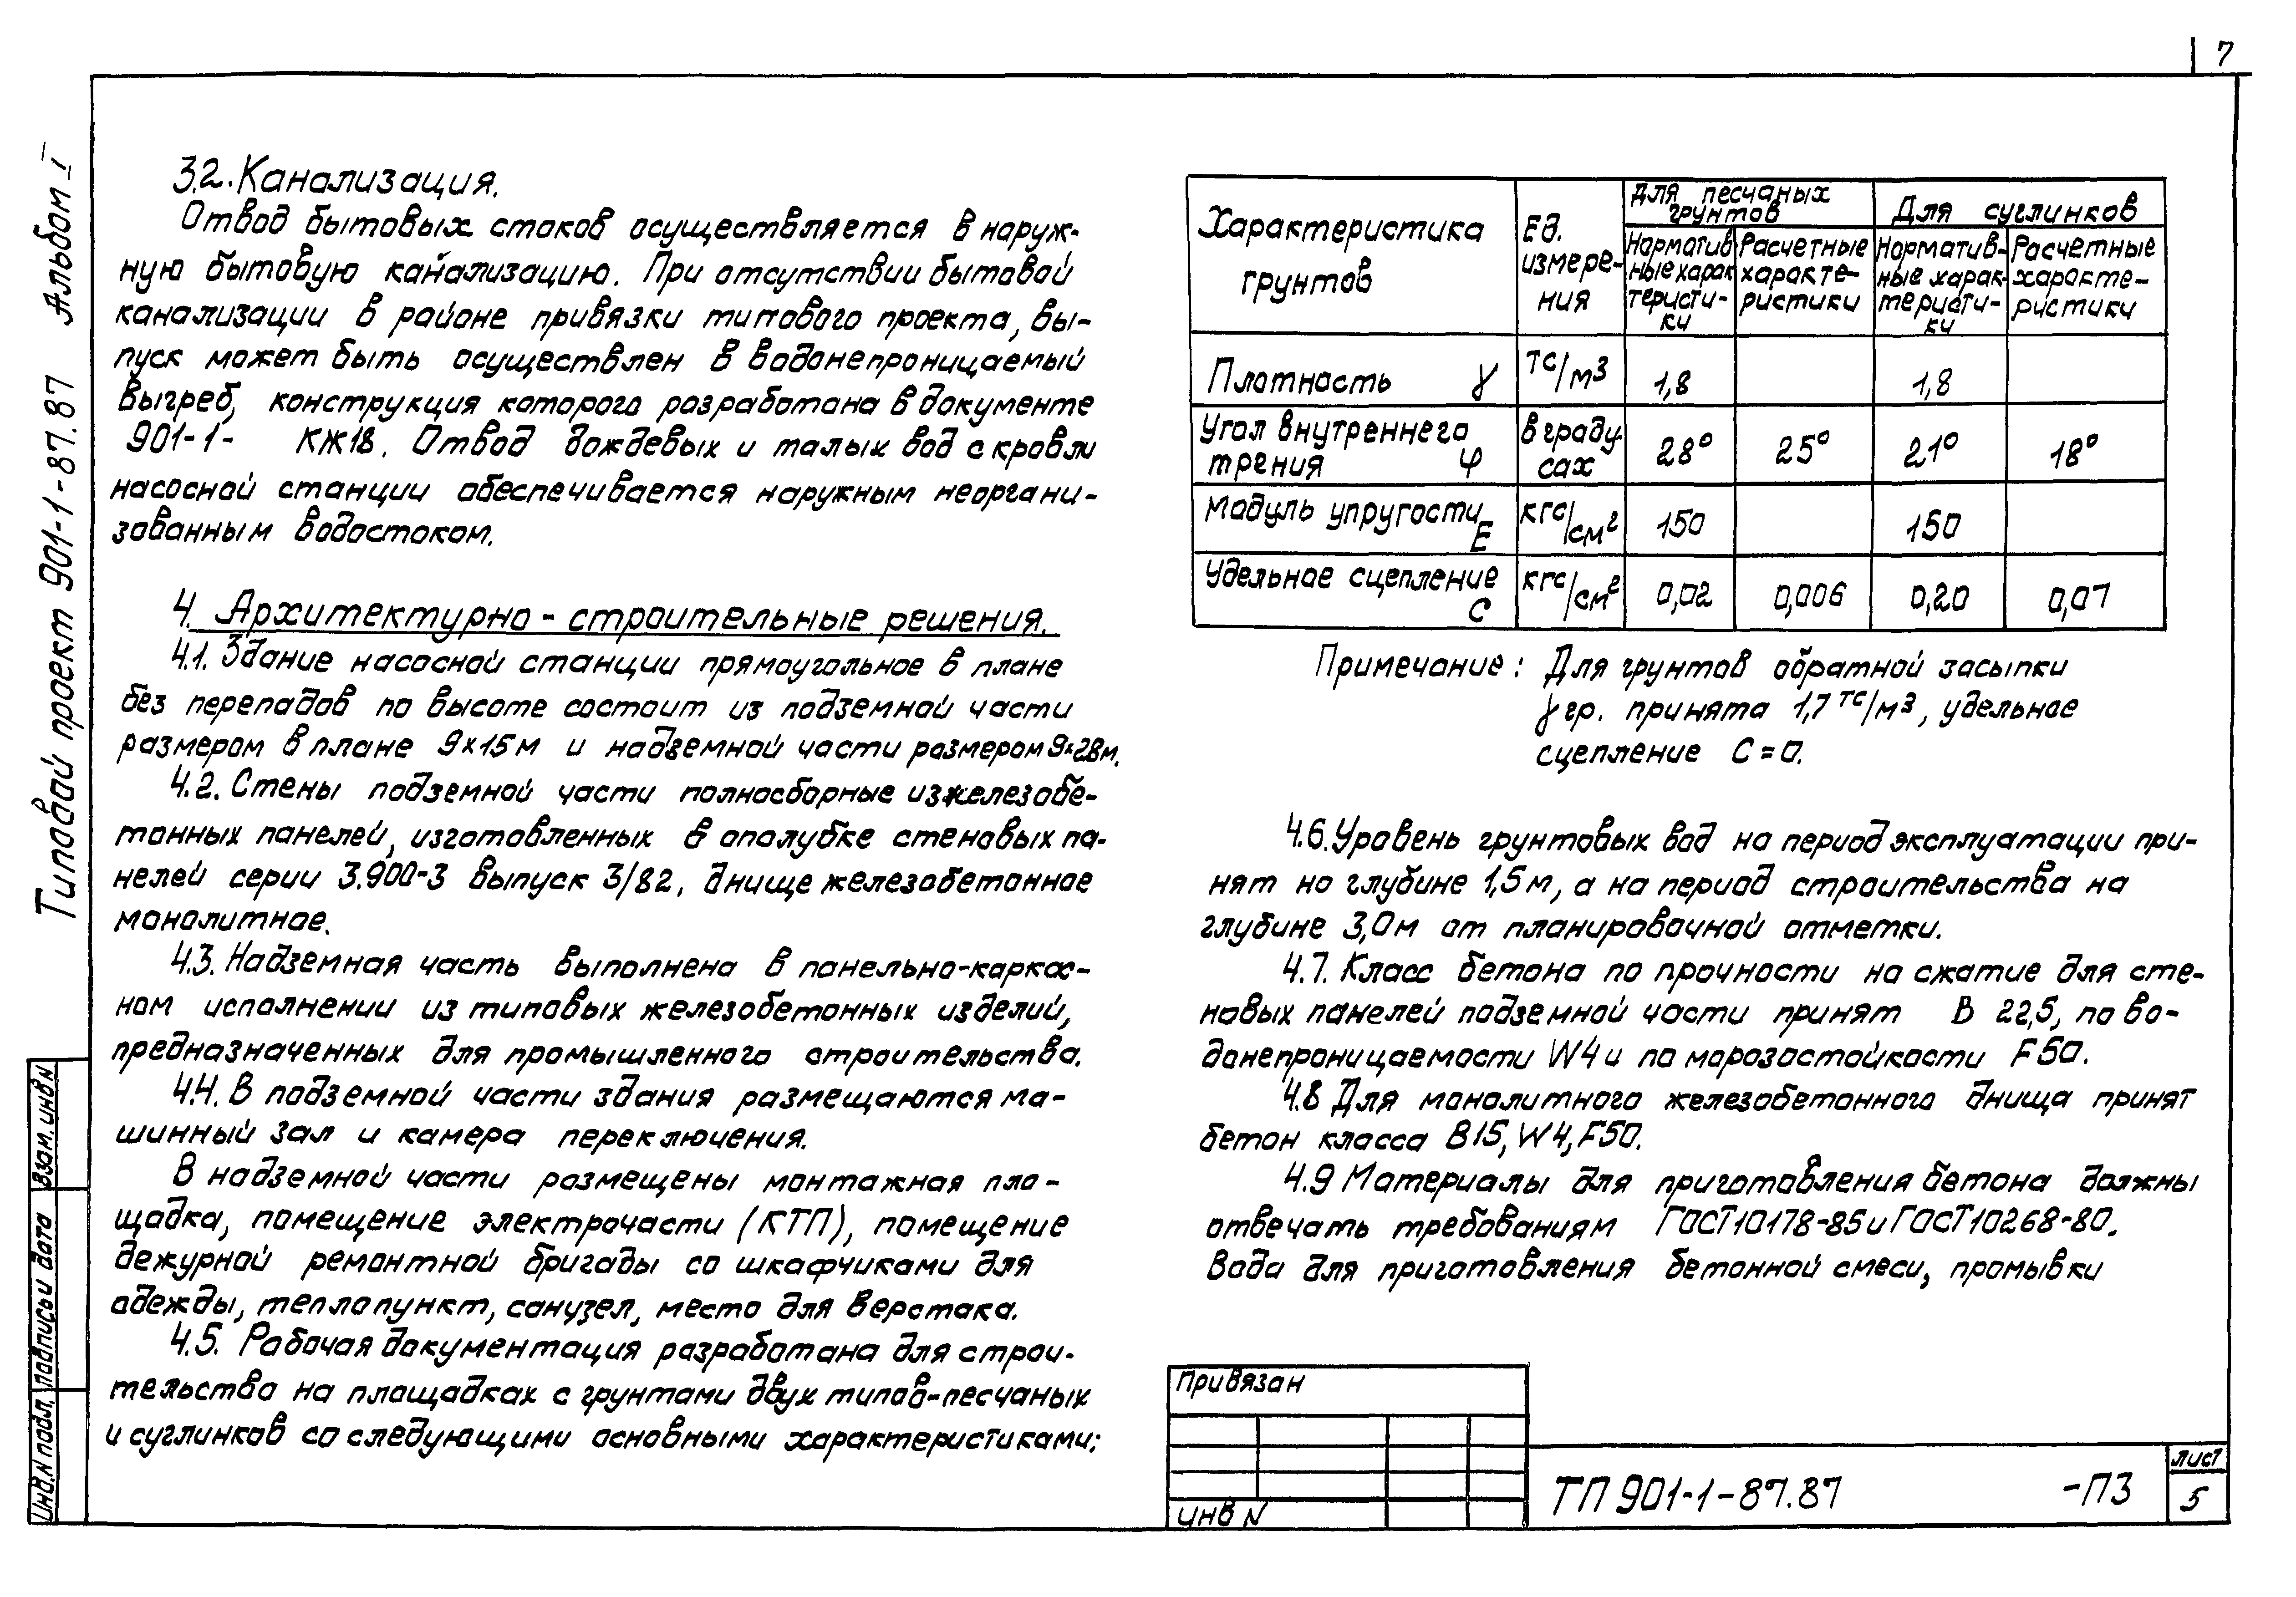 7
Типовой проект 901-1-87.87 Альбом I
3.2. Канализация.
Отвод бытовых стоков осуществляется в наруж-
ную бытовую канализацию. При отсутствии бытовой
канализации в районе привязки типового проекта, вы-
пуск может быть осуществлен в водонепроницаемый
выгреб, конструкция которого разработана в документе
901-1- КЖ18. Отвод дождевых и талых вод с кровли
насосной станции обеспечивается наружным неоргани-
зованным водостоком.
4. Архитектурно-строительные решения.
4.1. Здание насосной станции прямоугольное в плане
без перепадов по высоте состоит из подземной части
размером в плане 9х15м и надземной части размером 9х28м.
4.2. Стены подземной части полносборные из железобе-
тонных панелей, изготовленных в опалубке стеновых па-
нелей серии 3.900-3 выпуск 3/82, днище железобетонное
монолитное.
4.3. Надземная часть выполнена в панельно-каркас-
ном исполнении из типовых железобетонных изделий,
предназначенных для промышленного строительства.
4.4. В подземной части здания размещаются ма-
шинный зал и камера переключения.
В надземной части размещены монтажная пло-
щадка, помещение электрочасти (КТП), помещение
дежурной ремонтной бригады со шкафчиками для
одежды, теплопункт, санузел, место для верстака.
4.5. Рабочая документация разработана для строи-
тельства на площадках с грунтами двух типов-песчаных
и суглинков со следующими основными характеристиками:
Характеристика грунтов | Ед. измере-ния | Для песчаных грунтов | Для суглинков
Норматив-ные харак-теристи-ки | Расчетные характе-ристики | Норматив-ные харак-теристи-ки | Расчетные характе-ристики
Плотность γ | тс/м3 | 1,8 | | 1,8 |
Угол внутреннего трения φ | в граду-сах | 28° | 25° | 21° | 18°
Модуль упругости E | кгс/см2 | 150 | | 150 |
Удельное сцепление C | кгс/см2 | 0,02 | 0,006 | 0,20 | 0,07
Примечание: Для грунтов обратной засыпки
γ гр. принята 1,7 тс/м3, удельное
сцепление C=0.
4.6. Уровень грунтовых вод на период эксплуатации при-
нят на глубине 1,5м, а на период строительства на
глубине 3,0м от планировочной отметки.
4.7. Класс бетона по прочности на сжатие для сте-
новых панелей подземной части принят В 22,5, по во-
донепроницаемости W4 и по морозостойкости F50.
4.8 Для монолитного железобетонного днища принят
бетон класса В15, W4, F50.
4.9 Материалы для приготовления бетона должны
отвечать требованиям ГОСТ10178-85 и ГОСТ10268-80.
Вода для приготовления бетонной смеси, промывки
Привязан
Инв N
ТП 901-1-87.87 -ПЗ
Лист
5
Взам. инв N
Подпись и дата
Инв. N подл.